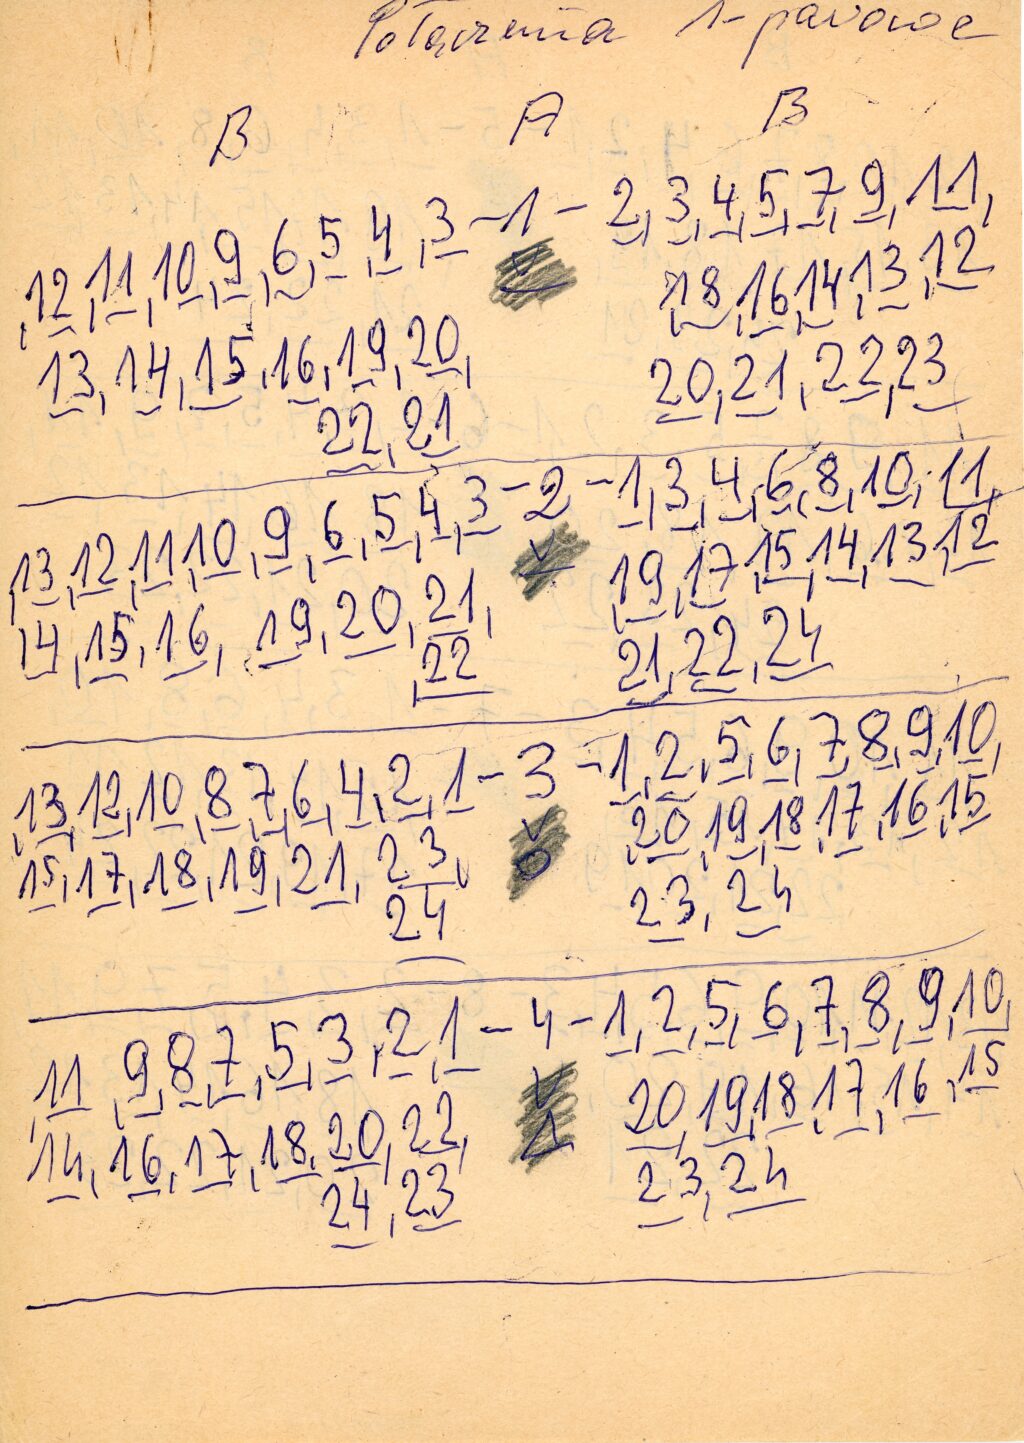 1-
B A B
,12,11,10,9,6,5,4,3-1-2,3,4,5,7,9,11,
,18,16,14,13,12
13,14,15,16,19,20,
20,21,22,23
22,21
,13,12,11,10,9,6,5,4,3-2-1,3,4,6,8,10,11,
,19,17,15,14,13,12
14,15,16,19,20,21,
21,22,24
,22
,13,12,10,8,7,6,4,2,1-3-1,2,5,6,7,8,9,10,
,20,19,18,17,16,15
15,17,18,19,21,23,
23,24
24
,11,9,8,7,5,3,2,1-4-1,2,5,6,7,8,9,10,
20,19,18,17,16,15
14,16,17,18,20,22,
23,24
24,23